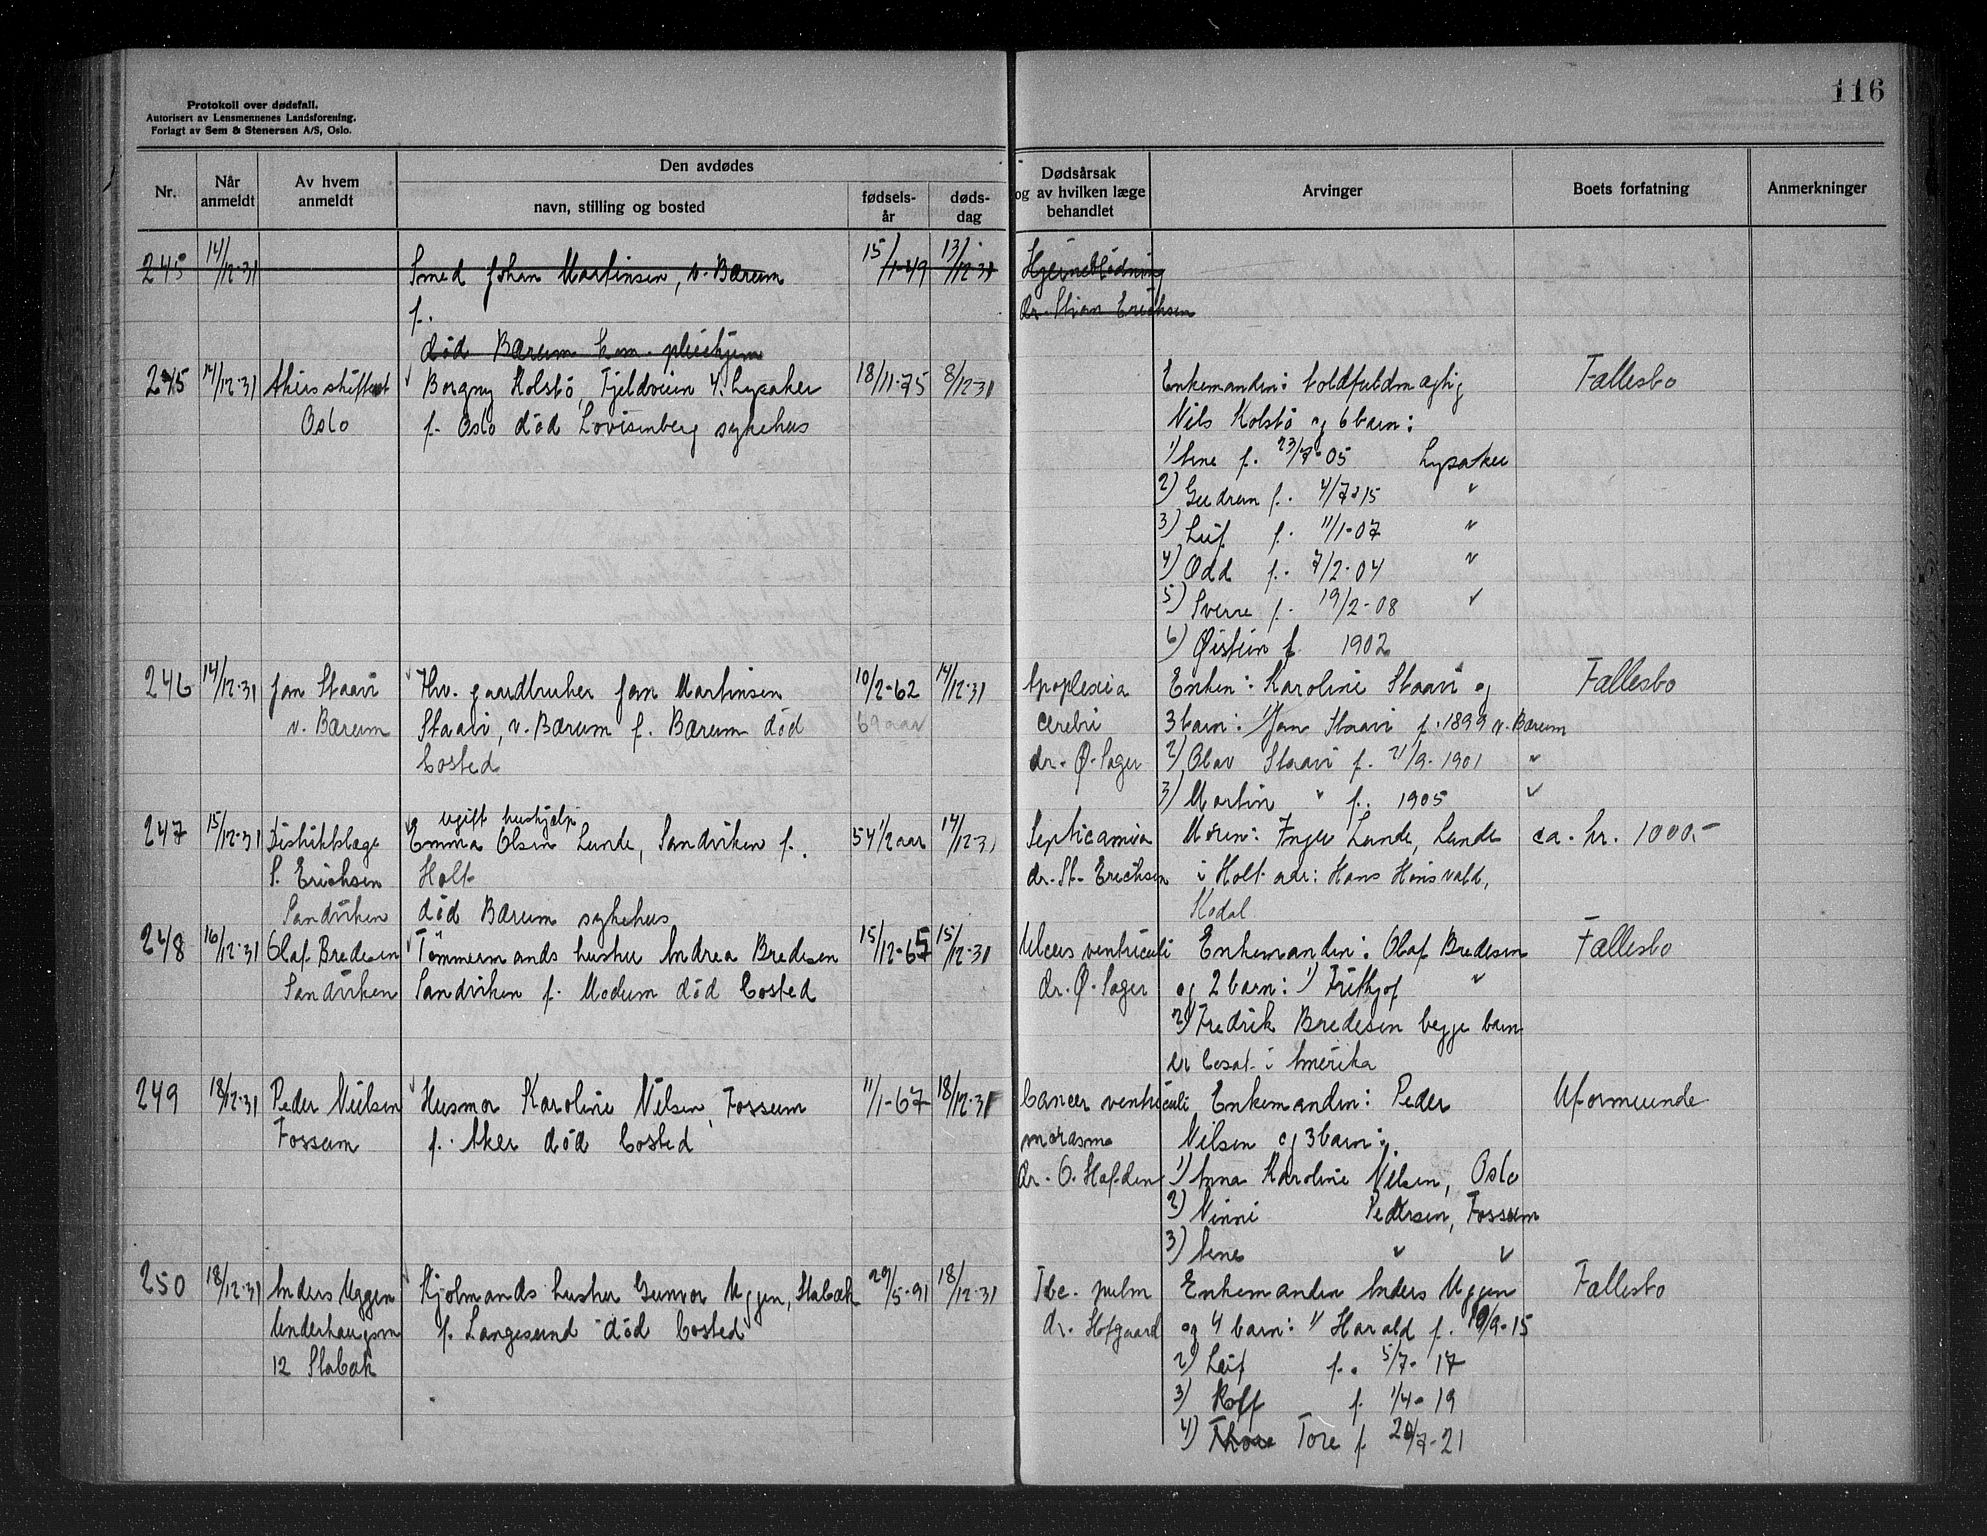 116
Protokoll over dødsfall.
Autorisert av Lensmennenes Landsforening.
Forlagt av Sem & Stenersen A/S, Oslo.
Nr.
Når anmeldt
Av hvem anmeldt
Den avdødes
navn, stilling og bosted
fødsels-år
døds-dag
Dødsårsak og av hvilken læge behandlet
Arvinger
Boets forfatning
Anmerkninger
245 14/12-31 Smed Johan Martinsen, v. Bærum 15/1-49 13/12-31 Hjerneblødning
f. dr. Stian Erichsen
død Bærum kom. pleiehjem
245 14/12-31 Akers skifteret Borgny Kolstö, Fjeldveien 4. Lysaker 18/11-75 8/12-31 Enkemanden: toldfuldmægtig Fællesbo
Oslo f. Oslo död Lovisenberg sykehus Nils Kolstö og 6 barn:
1) Arne f. 23/7-05 Lysaker
2) Gudrun f. 4/7-15 "
3) Leif f. 11/1-07 "
4) Odd f. 7/2-04 "
5) Sverre f. 19/2-08 "
6) Øistein f. 1902
246 14/12-31 Jan Staavi Fhv. gaardbruker Jan Martinsen 10/2-62 14/12-31 Apoplexia Enken: Karoline Staavi og Fællesbo
v. Bærum Staavi, v. Bærum f. Bærum död 69 aar cerebri 3 barn: 1) Jan Staavi f. 1899 v. Bærum
bosted dr. Ø. Sager 2) Olav Staavi f. 21/9-1901 "
3) Martin " f. 1905 "
ugift hushjelp
247 15/12-31 Distriktslæge Emma Olsen Lunde, Sandviken f. 54 1/2 aar 14/12-31 Septicæmia Moren: Inger Lunde, Lunde ca. kr. 1000.-
S. Erichsen Holt dr. St. Erichsen i Holt adr: Hans Hönsvald,
Sandviken död Bærum sykehus Kodal
248 16/12-31 Olaf Bredesen Tömmermands hustru Andrea Bredesen 15/12-65 15/12-31 Ulcus ventriculi Enkemanden: Olaf Bredesen Fællesbo
Sandviken Sandviken f. Modum död bosted dr. Ø. Sager og 2 barn: 1) Frithjof "
2) Fredrik Bredesen begge barn
er bosat i Amerika
249 18/12-31 Peder Nielsen Husmor Karoline Nilsen, Fossum 11/1-67 18/12-31 Cancer ventriculi Enkemanden: Peder Uformuende
Fossum f. Aker död bosted marasme Nilsen og 3 barn:
dr. O. Hafden 1) Anna Karoline Nilsen, Oslo
2) Ninni Pedersen, Fossum
3) Arne " "
250 18/12-31 Anders Uggen Kjolmands hustru Gunvor Uggen, Stabæk 29/5-91 18/12-31 Tbc. pulm Enkemanden Anders Uggen Fællesbo
Underhaugsvn f. Langesund död bosted dr. Hofgaard og 4 barn: 1) Harald f. 19/9-15
12 Stabæk 2) Leif f. 5/7-17
3) Rolf f. 1/4-19
4) Thore Tore f. 20/7-21